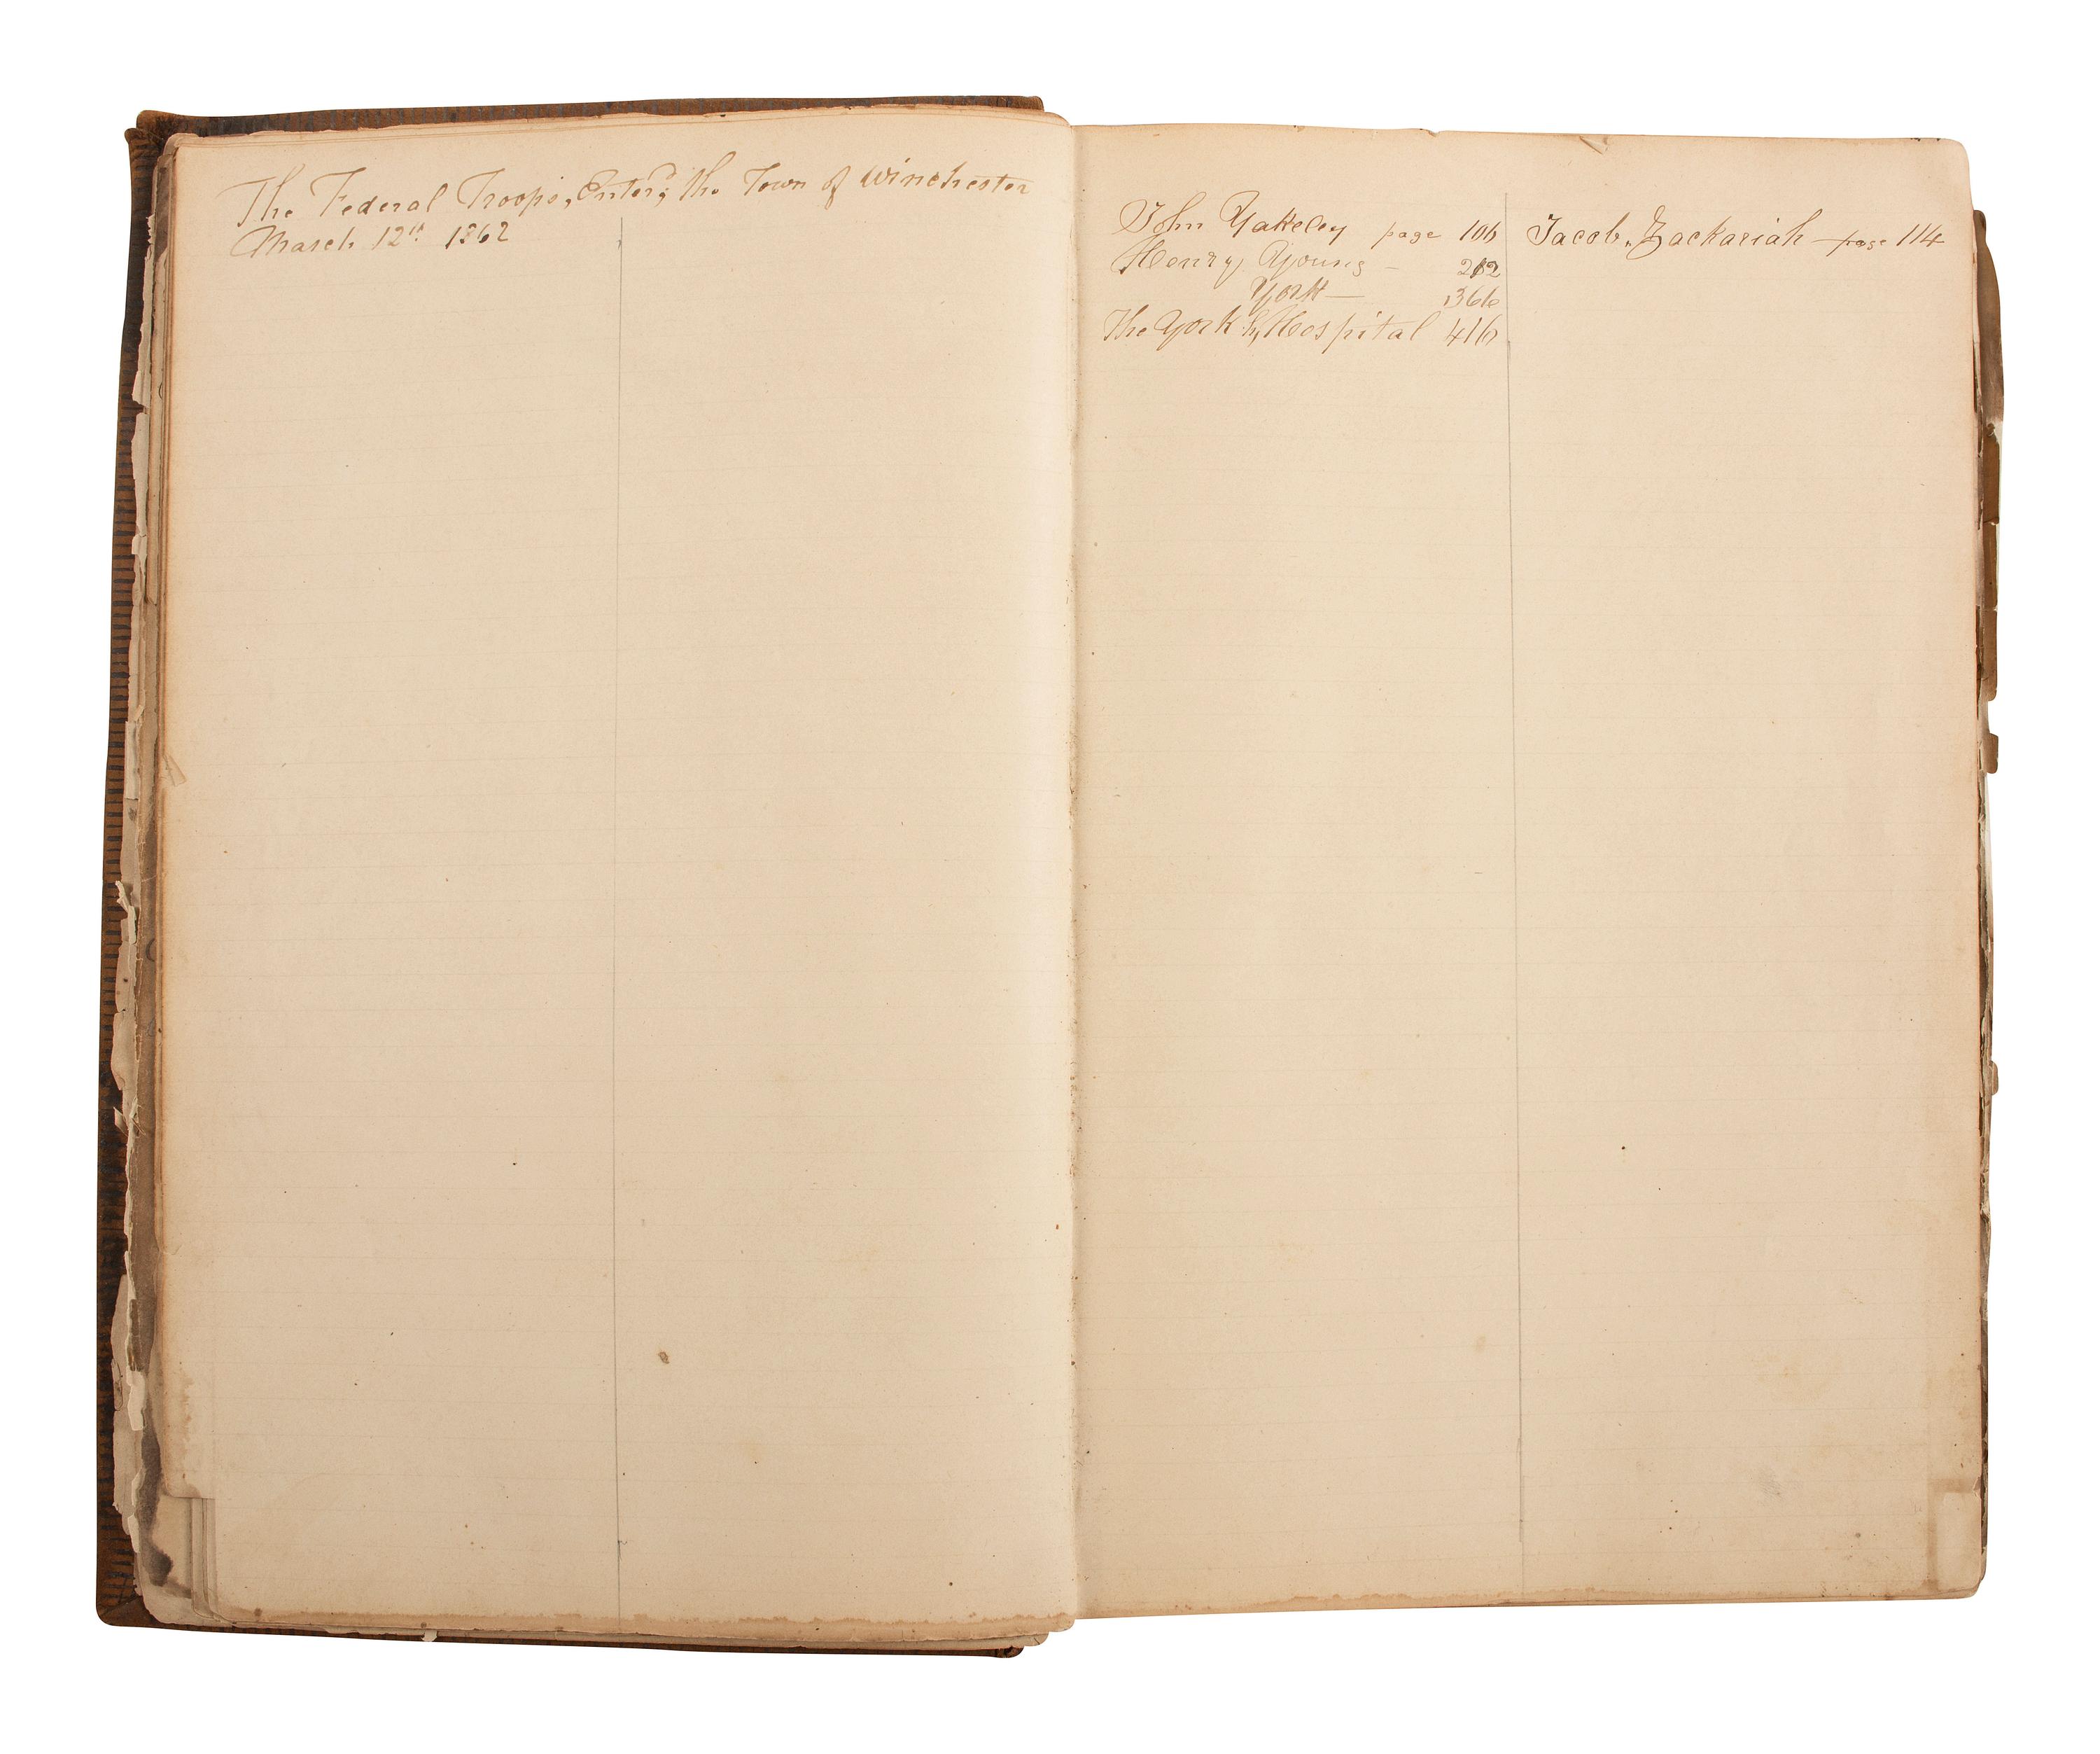 The Federal Troops, Enter'd, the Town of Winchester
March 12th 1862
John Yakeley page 106
Henry Young — 202
York — 366
The York Hospital 416
Jacob, Zackariah — page 114